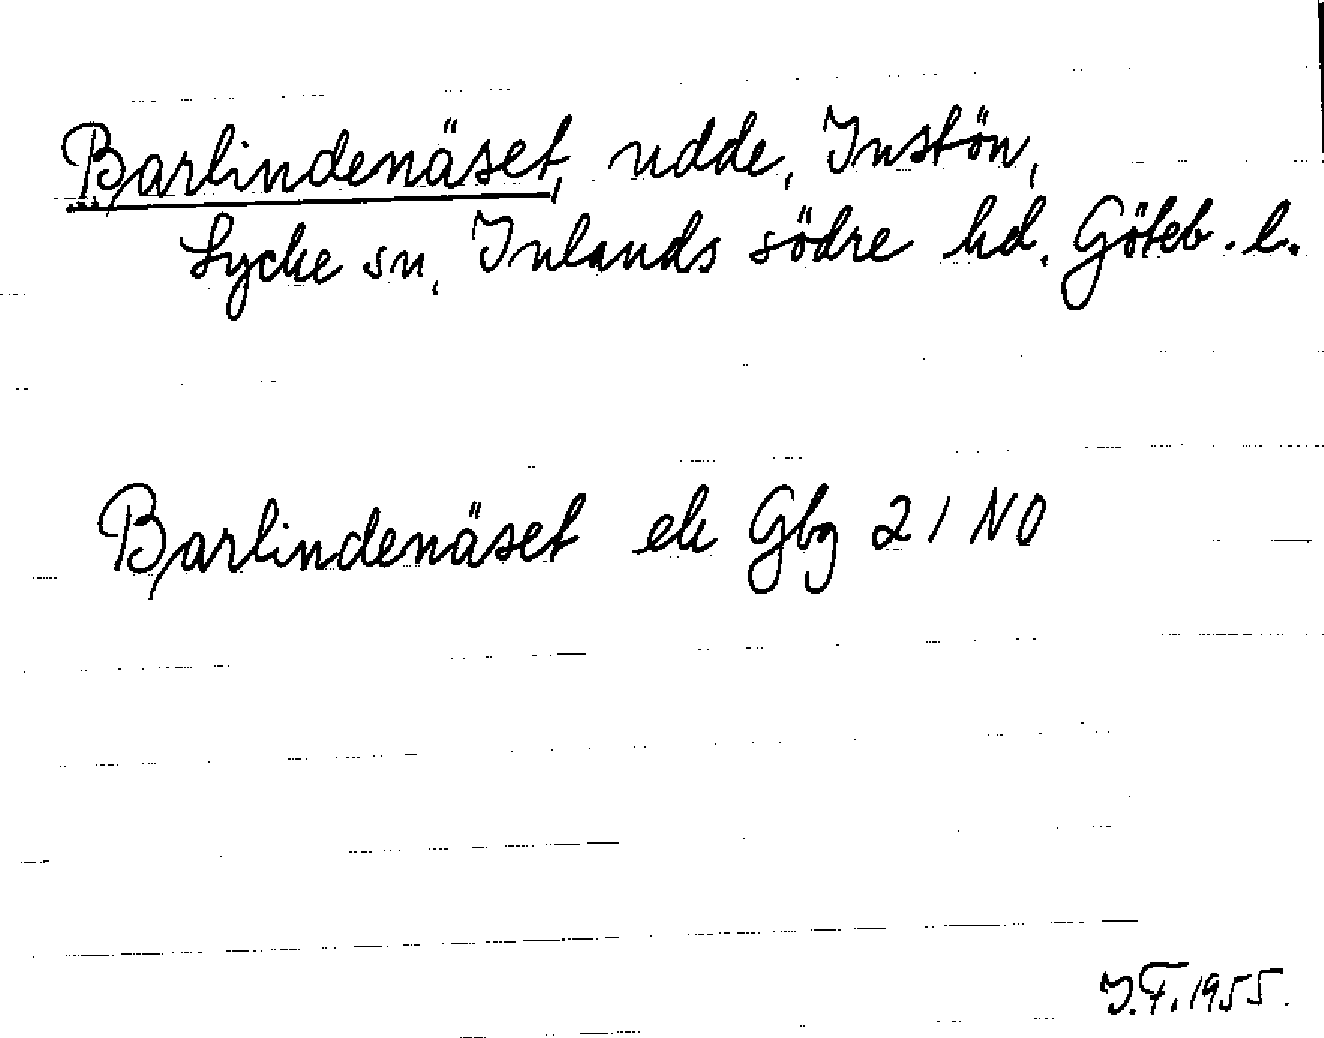 Barlindenäset, udde, Instön,
Lycke sn, Inlands södre hd. Göteb. l.
Barlindenäset ek Gbg 21 NO
I.F. 1955.